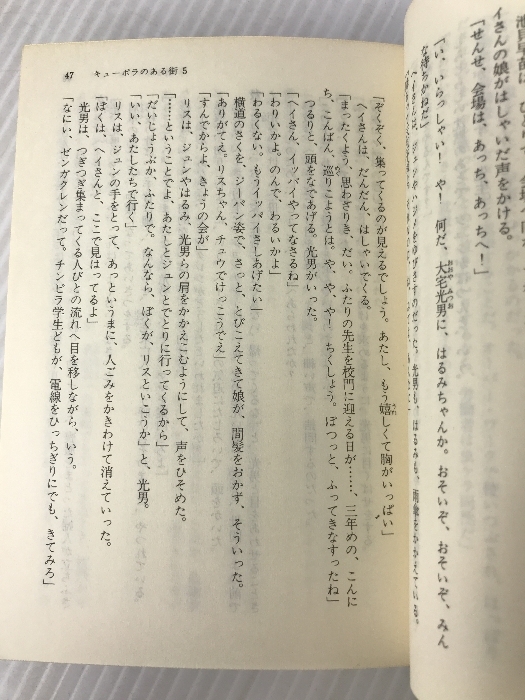 イさんの娘がはしゃいだ声をかける。
「せんせ、会場は、あっち、あっちへ！」
「い、いらっしゃい！　や！　何だ、大宅光男に、はるみちゃんか。おそいぞ、おそいぞ、みん
な待ちかねだ」
47　キューポラのある街 5
「ぞくぞく、集ってくるのが見えるでしょう。あたし、もう嬉しくて胸がいっぱい」
ヘイさんは、だんだん、はしゃいでくる。
「まったくよう、思わざりき、だい、ふたりの先生を校門に迎える日が……、三年めの、こんに
ち、こんばん、巡りこようとは。や、や、や！　ちくしょう。ぽつっと、ふってきなすったね」
つるりと、頭をなであげる。光男がいった。
「ヘイさん、イッパイやってなさるね」
「わりいかよ。のんで、わるいかよ」
「わるくない。もうイッパイさしあげたい」
横道のさくを、ジーパン姿で、さっと、とびこえてきて娘が、間髪をおかず、そういった。
「ありがてえ。リスちゃん、チュウでけっこうでえ」
「すんでからよ、きょうの会が」
リスは、ジュンやはるみ、光男らの肩をかかえこむようにして、声をひそめた。
「……ということでよ、あたしとジュンとでとりに行ってくるから」
「だいじょうぶか、ふたりで。なんなら、ぼくが、リスといこうか」と、光男。
「いい、あたしたちで行く」
リスは、ジュンの手をとって、あっというまに、人ごみをかきわけて消えていった。
「ぼくは、ヘイさんと、ここで見はってるよ」
光男は、つぎつぎ集まってくる人びとの流れへ目を移しながら、いう。
「なにい、ゼンガクレンだって。チンピラ学生どもが、電線をひっちぎりにでも、きてみろ」